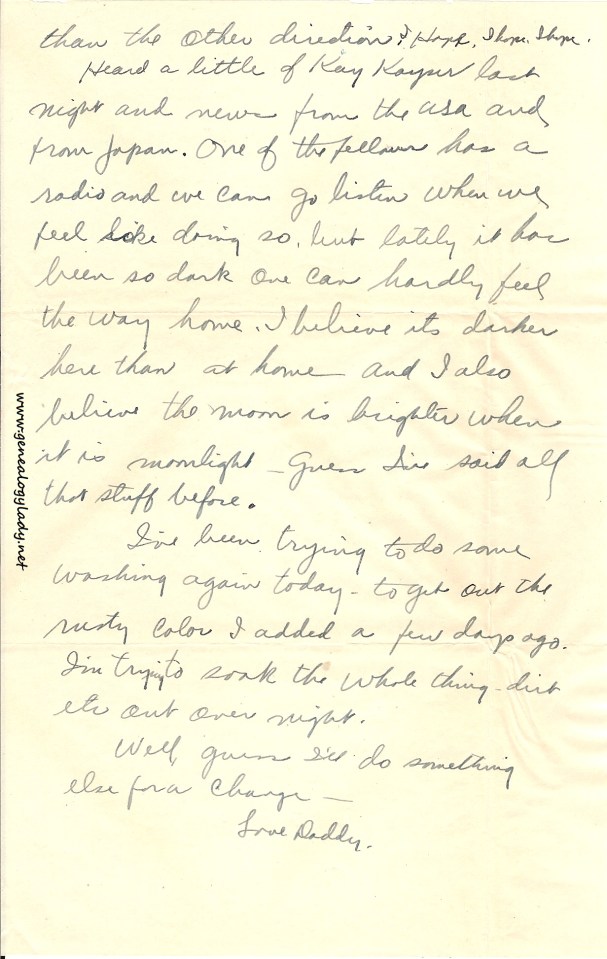 than the other direction? I hope, I hope, I hope.
Heard a little of Kay Kayser last
night and news from the USA and
from Japan. One of the fellows has a
radio and we can go listen when we
feel like doing so, but lately it has
been so dark one can hardly feel
the way home. I believe its darker
here than at home and I also
believe the moon is brighter when
it is moonlight – Guess I've said all
that stuff before.
I've been trying to do some
washing again today – to get out the
rusty color I added a few days ago.
I'm trying to soak the whole thing – dirt
etc out over night.
Well, guess I'll do something
else for a change —
Love Daddy.
www.genealogylady.net